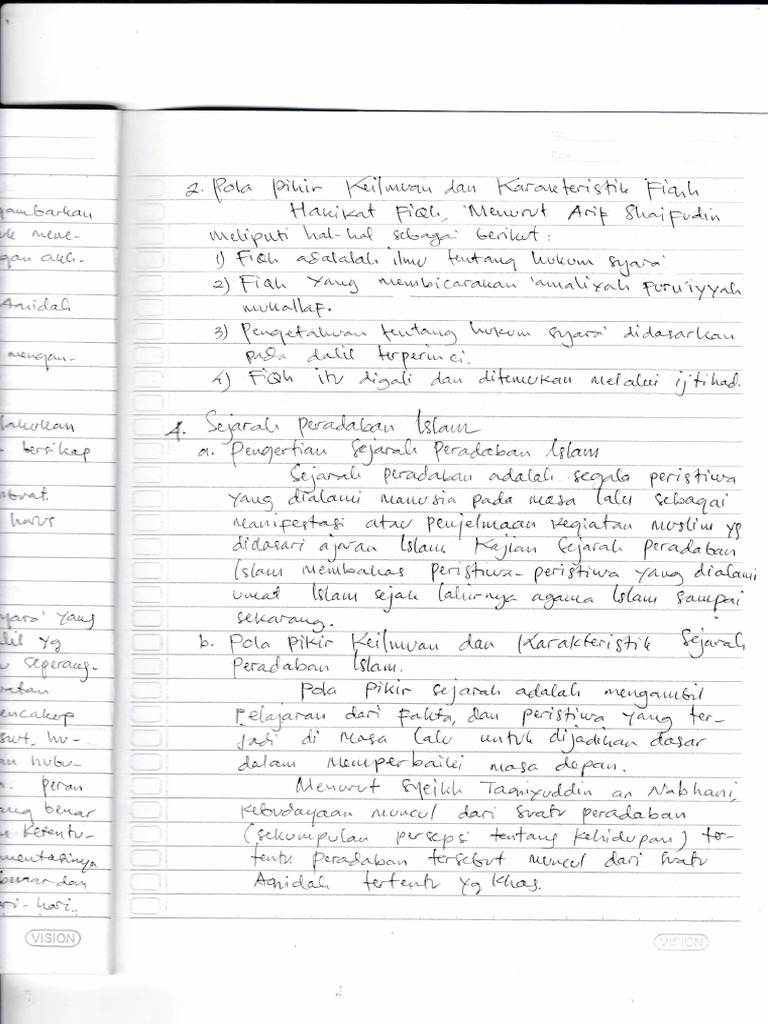 gambarkan
mene-
gan akh-
Aqidah
mengan-
lakukan
- bersikap
harus
syara' yang
dalil yg
seperang-
encakup
swt, hu-
an hubu-
peran
ang benar
ketentu-
mentasinya
benar dan
ri-hari.
VISION
No.
Date.
2. Pola pikir Keilmuan dan Karakteristik Fiqh
Hakikat Fiqh, Menurut Arif Shaifudin
meliputi hal-hal sebagai berikut :
1) Fiqh adalalah ilmu tentang hukum syara'
2) Fiqh yang membicarakan 'amaliyah furu'iyyah
mukallaf.
3) Pengetahuan tentang hukum syara' didasarkan
pada dalil terperinci.
4) Fiqh itu digali dan ditemukan melalui ijtihad.
4. Sejarah peradaban Islam
a. Pengertian Sejarah Peradaban Islam
Sejarah peradaban adalah segala peristiwa
yang dialami manusia pada masa lalu sebagai
manifestasi atau penjelmaan kegiatan muslim yg
didasari ajaran Islam. Kajian Sejarah peradaban
Islam membahas peristiwa-peristiwa yang dialami
umat Islam sejak lahirnya agama Islam sampai
sekarang.
b. Pola pikir Keilmuan dan Karakteristik Sejarah
Peradaban Islam.
Pola pikir sejarah adalah mengambil
pelajaran dari fakta, dan peristiwa yang ter-
jadi di masa lalu untuk dijadikan dasar
dalam memperbaiki masa depan.
Menurut syeikh Taqiyuddin an Nabhani,
kebudayaan muncul dari suatu peradaban
(sekumpulan persepsi tentang kehidupan) ter-
tentu. peradaban tersebut muncul dari suatu
Aqidah tertentu yg khas.
VISION
2